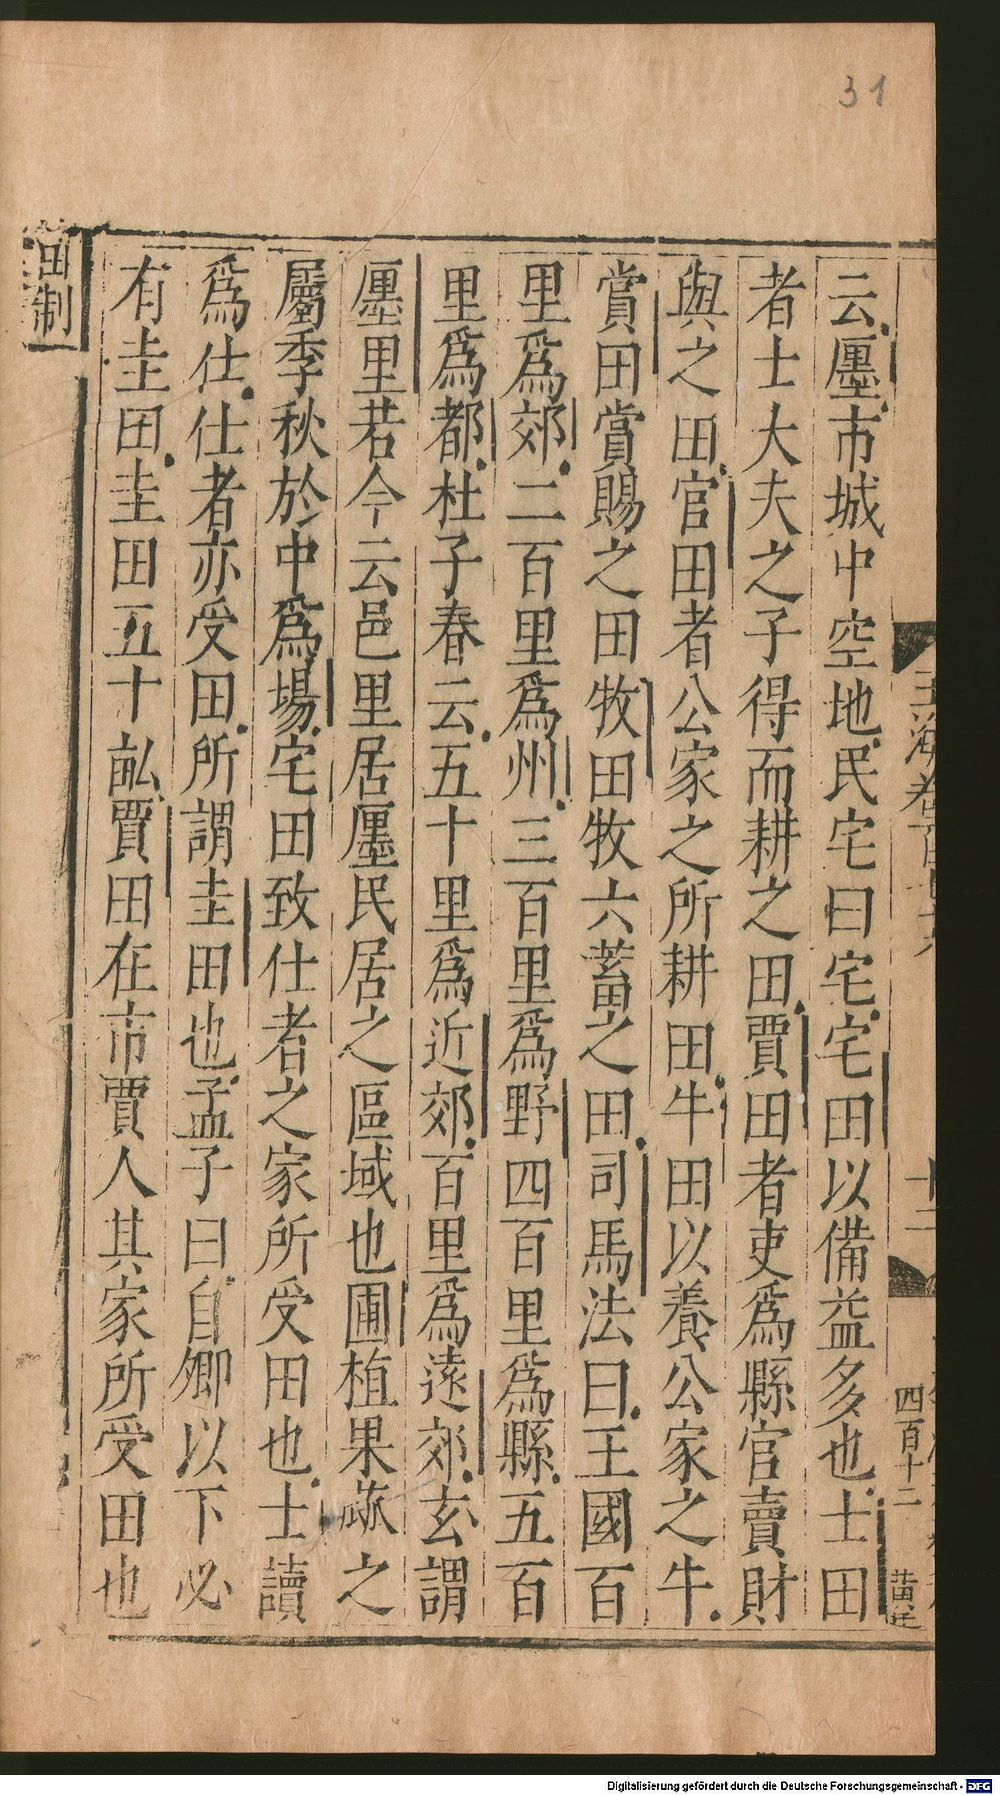 31
玉海卷百七六
十二
四百十二
云廛市城中空地民宅曰宅宅田以備益多也士田
者士大夫之子得而耕之田賈田者吏爲縣官賣財
與之田官田者公家之所耕田牛田以養公家之牛
賞田賞賜之田牧田牧六蓄之田司馬法曰王國百
里爲郊二百里爲州三百里爲野四百里爲縣五百
里爲都杜子春云五十里爲近郊百里爲遠郊玄謂
廛里若今云邑里居廛民居之區域也圃植果蓏之
屬季秋於中爲場宅田致仕者之家所受田也士讀
爲仕仕者亦受田所謂圭田也孟子曰自卿以下必
有圭田圭田五十畝賈田在市賈人其家所受田也
田制
Digitalisierung gefördert durch die Deutsche Forschungsgemeinschaft - DFG